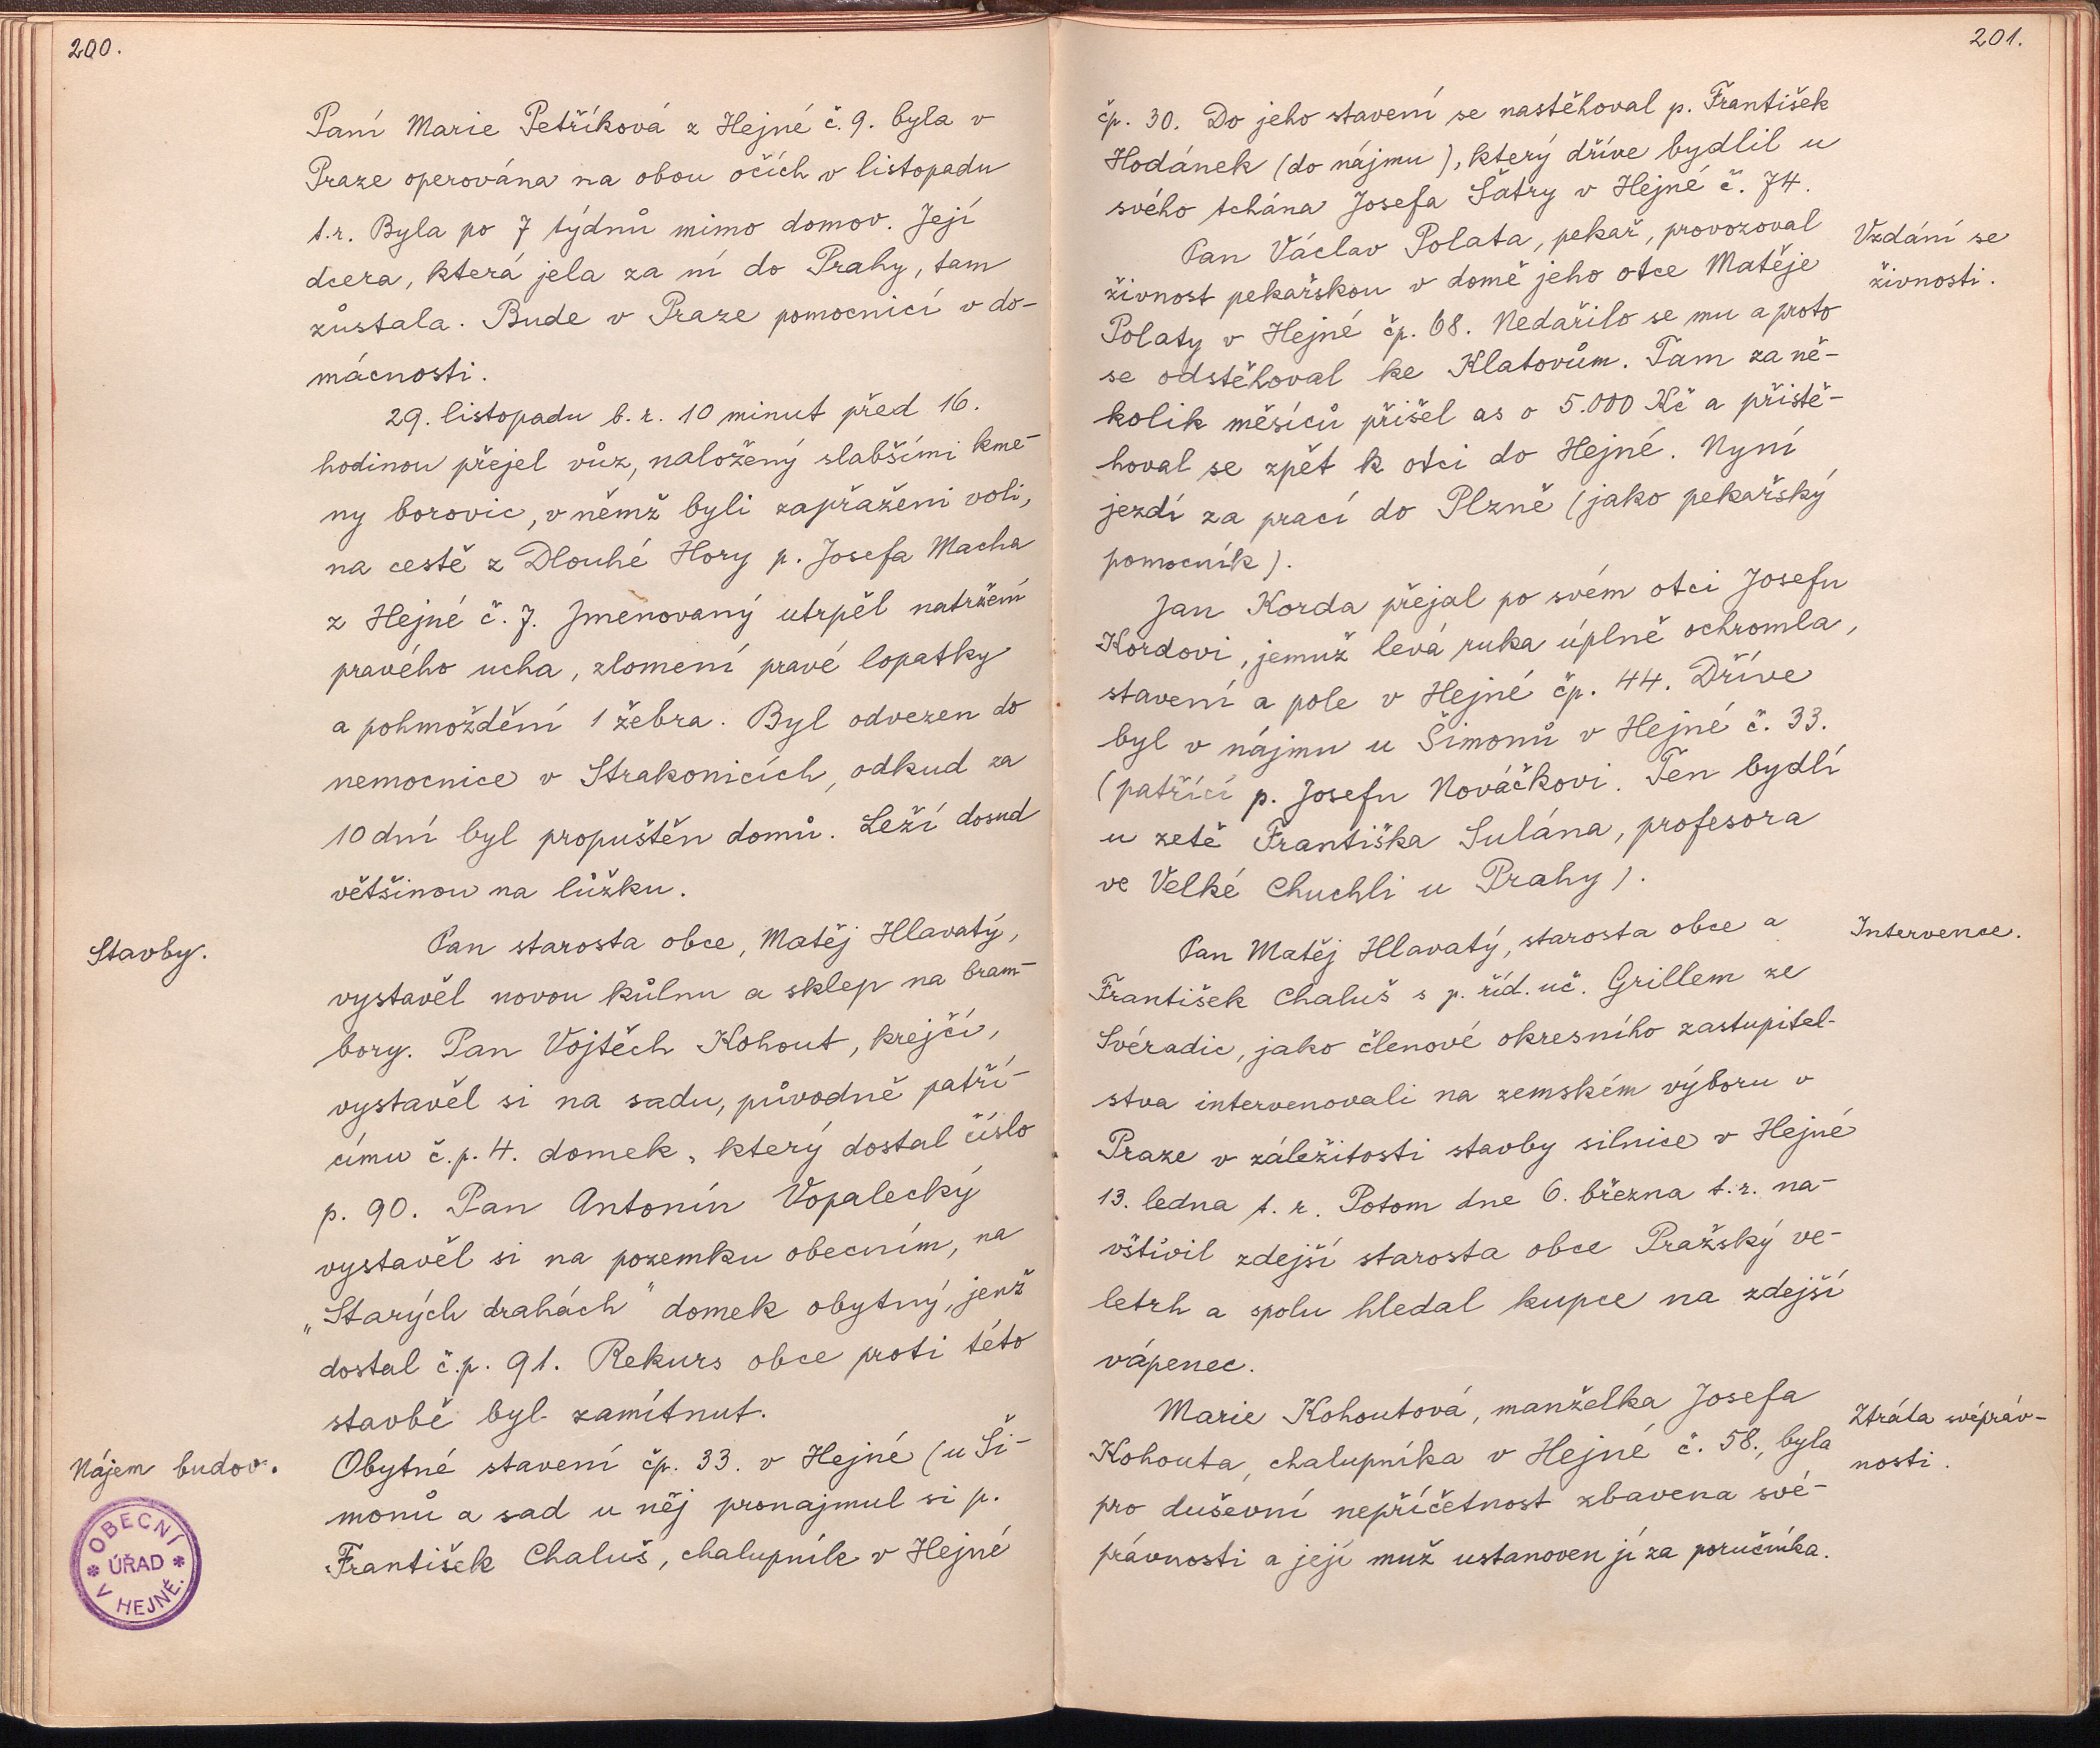 200.
Paní Marie Petříková z Hejné č. 9. byla v
Praze operována na obou očích v listopadu
t.r. Byla po 7 týdnů mimo domov. Její
dcera, která jela za ní do Prahy, tam
zůstala. Bude v Praze pomocnicí v do-
mácnosti.
29. listopadu b. r. 10 minut před 16.
hodinou přejel vůz, naložený slabšími kme-
ny borovic, v němž byli zapřaženi voli,
na cestě z Dlouhé Hory p. Josefa Macha
z Hejné č. 7. Jmenovaný utrpěl natržení
pravého ucha, zlomení pravé lopatky
a pohmoždění 1 žebra. Byl odvezen do
nemocnice v Strakonicích, odkud za
10 dní byl propuštěn domů. Leží dosud
většinou na lůžku.
Stavby.
Pan starosta obce, Matěj Hlavatý,
vystavěl novou kůlnu a sklep na bram-
bory. Pan Vojtěch Kohout, krejčí,
vystavěl si na sadu, původně patří-
címu č.p. 4. domek, který dostal číslo
p. 90. Pan Antonín Vopalecký
vystavěl si na pozemku obecním, na
„Starých drahách" domek obytný, jenž
dostal č.p. 91. Rekurs obce proti této
stavbě byl zamítnut.
Nájem budov.
Obytné stavení čp. 33. v Hejné (u Ši-
monů a sad u něj pronajmul si p.
František Chaluš, chalupník v Hejné
OBECNÍ
ÚŘAD
V HEJNÉ.
201.
čp. 30. Do jeho stavení se nastěhoval p. František
Hodánek (do nájmu), který dříve bydlil u
svého tchána Josefa Šatry v Hejné č. 74.
Vzdání se
živnosti.
Pan Václav Polata, pekař, provozoval
živnost pekařskou v domě jeho otce Matěje
Polaty v Hejné čp. 68. Nedařilo se mu a proto
se odstěhoval ke Klatovům. Tam za ně-
kolik měsíců přišel as o 5.000 Kč a přistě-
hoval se zpět k otci do Hejné. Nyní
jezdí za prací do Plzně (jako pekařský
pomocník).
Jan Korda přejal po svém otci Josefu
Kordovi, jemuž levá ruka úplně ochromla,
stavení a pole v Hejné čp. 44. Dříve
byl v nájmu u Šimonů v Hejné č. 33.
(patřící p. Josefu Nováčkovi. Ten bydlí
u zetě Františka Sulána, profesora
ve Velké Chuchli u Prahy).
Intervence.
Pan Matěj Hlavatý, starosta obce a
František Chaluš s p. říd. uč. Grillem ze
Svéradic, jako členové okresního zastupitel-
stva intervenovali na zemském výboru v
Praze v záležitosti stavby silnice v Hejné
13. ledna t. r. Potom dne 6. března t.r. na-
vštívil zdejší starosta obce Pražský ve-
letrh a spolu hledal kupce na zdejší
vápenec.
Ztráta svépráv-
nosti.
Marie Kohoutová, manželka Josefa
Kohouta, chalupníka v Hejné č. 58., byla
pro duševní nepříčetnost zbavena své-
právnosti a její muž ustanoven jí za poručníka.